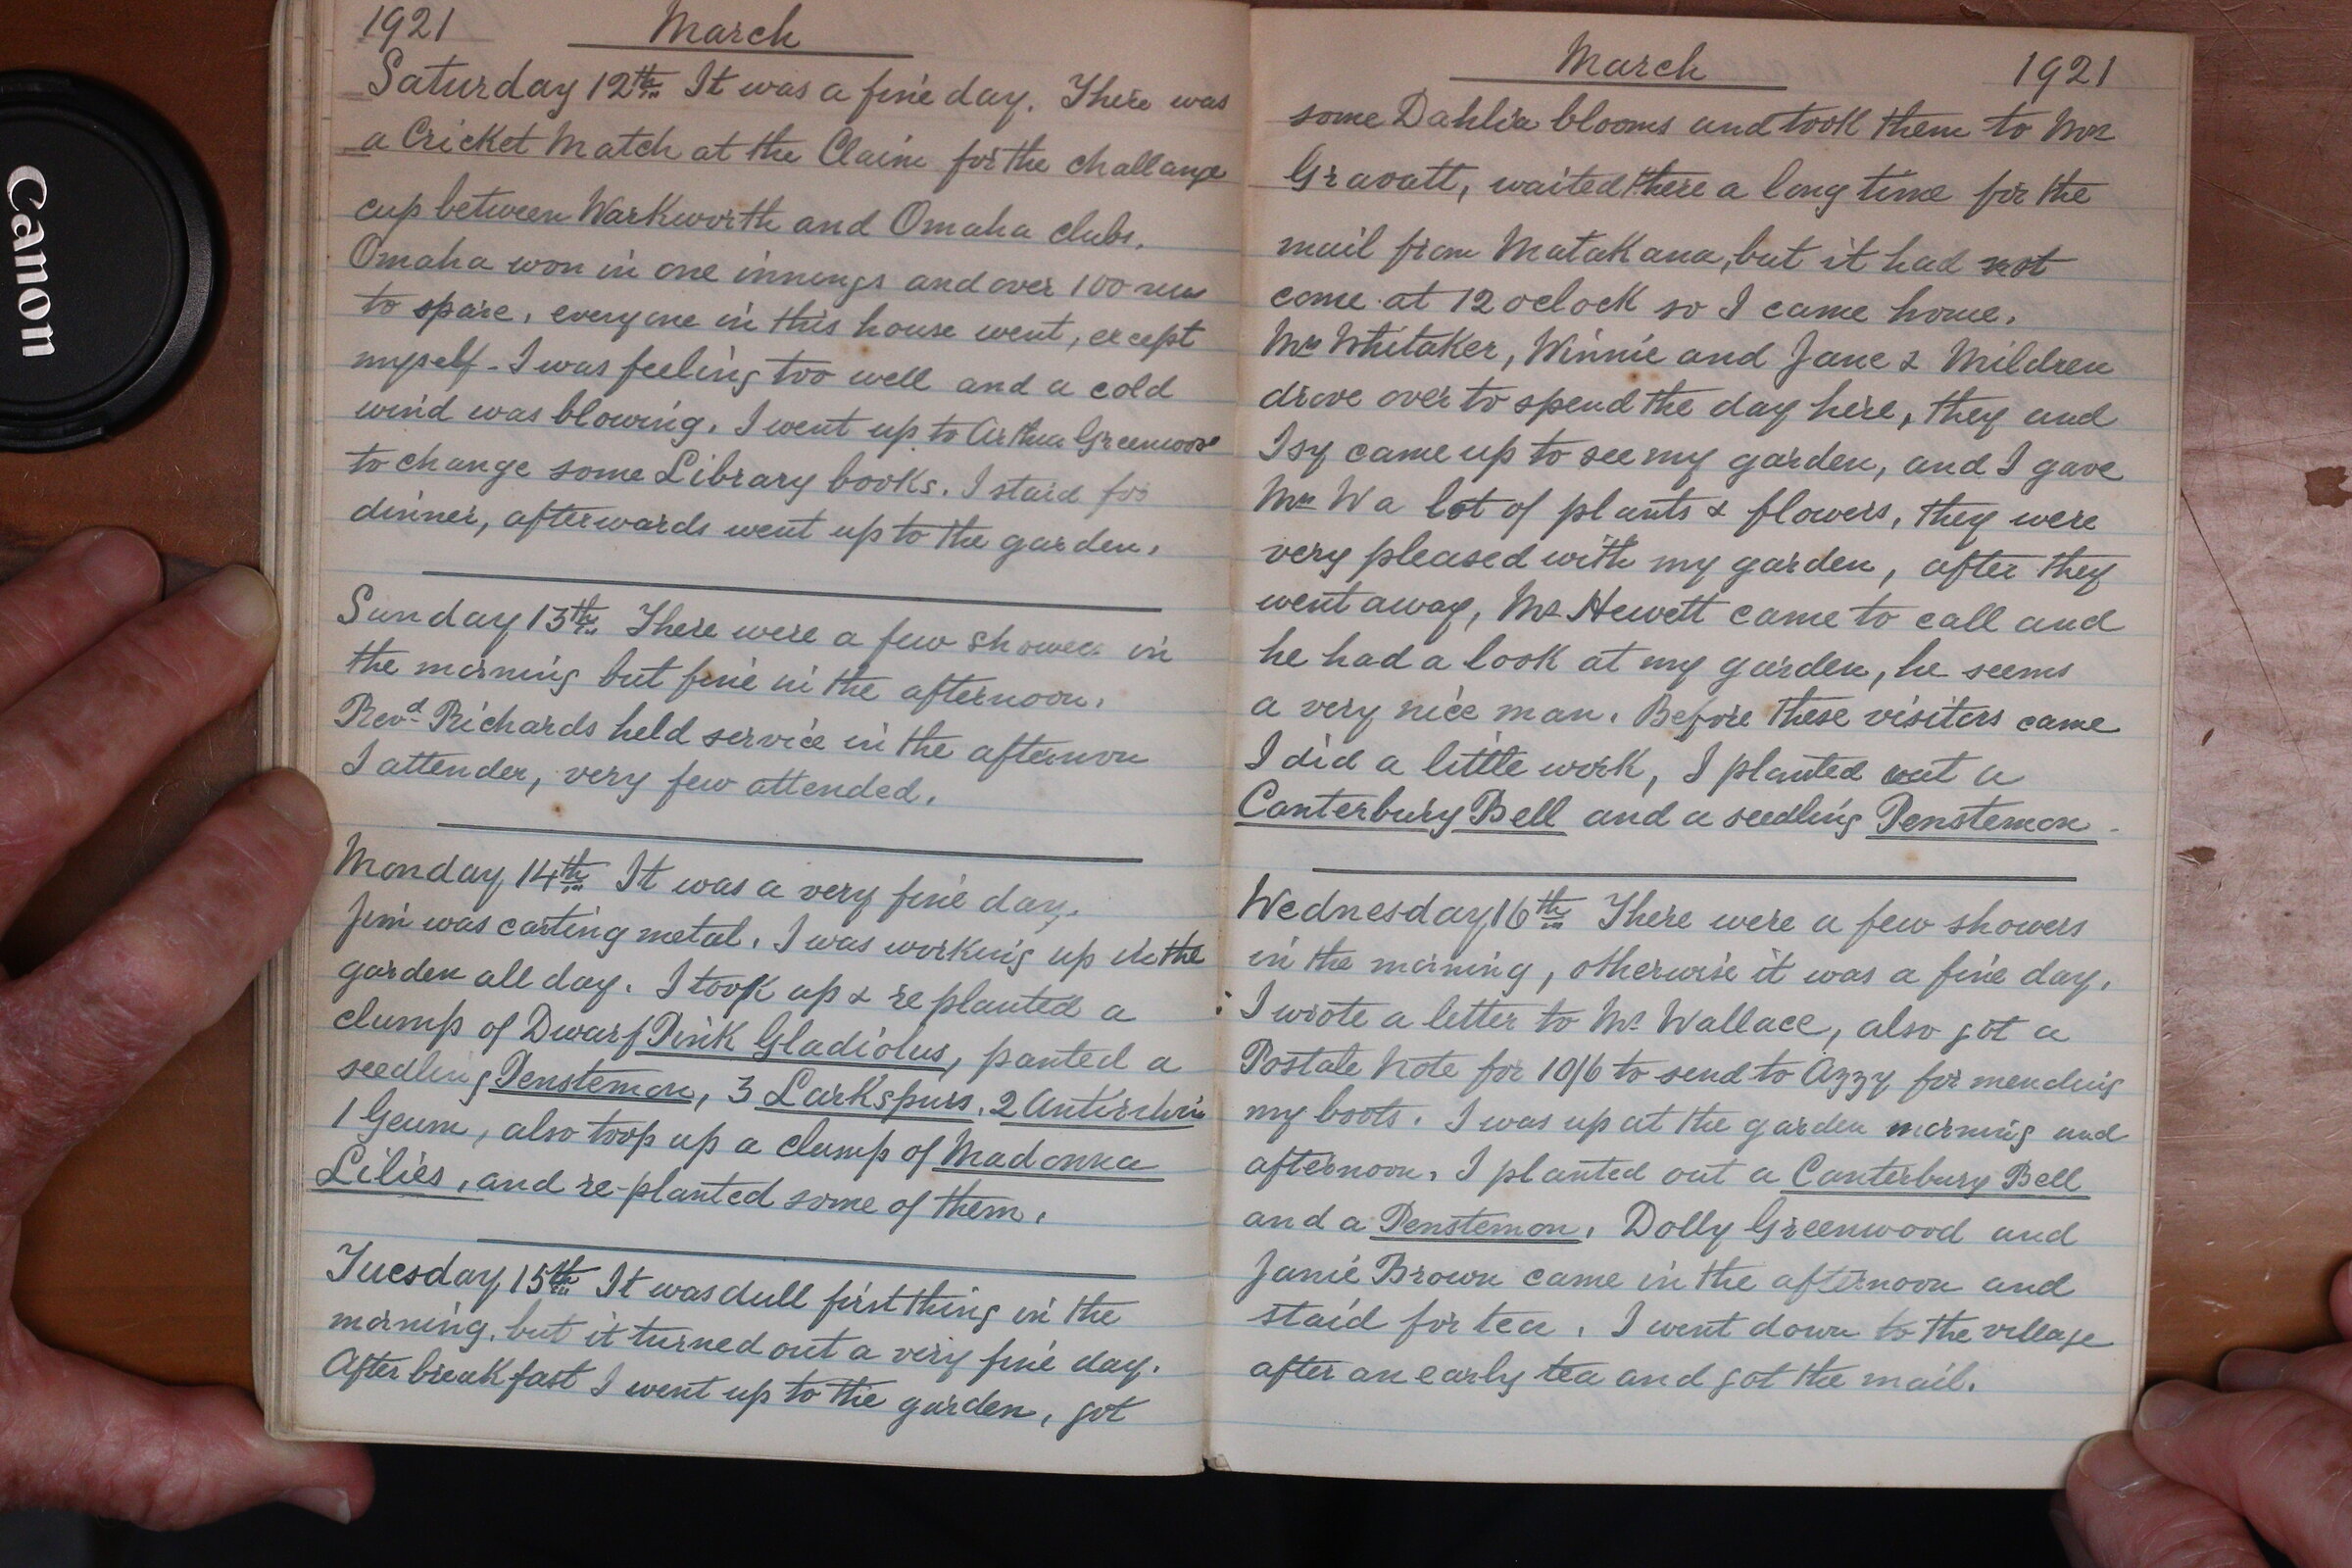 Canon
1921 March
Saturday 12th It was a fine day. There was
a Cricket Match at the Claim for the challange
cup between Warkworth and Omaha clubs.
Omaha won in one innings and over 100 runs
to spare, everyone in this house went, except
myself. I was feeling too well and a cold
wind was blowing. I went up to Arthur Greenwood
to change some Library books. I staid for
dinner, afterwards went up to the garden.
Sunday 13th There were a few showers in
the morning but fine in the afternoon.
Revd Richards held service in the afternoon
I attender, very few attended.
Monday 14th It was a very fine day.
Jim was carting metal. I was working up in the
garden all day. I took up & re planted a
clump of Dwarf Pink Gladiolus, panted a
seedling Penstemon, 3 Larkspurs, 2 Antirrhin
1 Geum, also toop up a clump of Madonna
Lilies, and re-planted some of them.
Tuesday 15th It was dull first thing in the
morning, but it turned out a very fine day.
After breakfast I went up to the garden, got
March 1921
some Dahlia blooms and took them to Mrs
Gravatt, waited there a long time for the
mail from Matakana, but it had not
come at 12 oclock so I came home.
Mrs Whitaker, Winnie and Jane & Mildren
drove over to spend the day here, they and
Isy came up to see my garden, and I gave
Mrs W a lot of plants & flowers, they were
very pleased with my garden, after they
went away, Mr Hewett came to call and
he had a look at my garden, he seems
a very nice man. Before these visitors came
I did a little work, I planted out a
Canterbury Bell and a seedling Penstemon.
Wednesday 16th There were a few showers
in the morning, otherwise it was a fine day.
I wrote a letter to Mr Wallace, also got a
Postale Note for 10/6 to send to Azzy for mending
my boots. I was up at the garden morning and
afternoon. I planted out a Canterbury Bell
and a Penstemon. Dolly Greenwood and
Janie Brown came in the afternoon and
staid for tea. I went down to the village
after an early tea and got the mail.